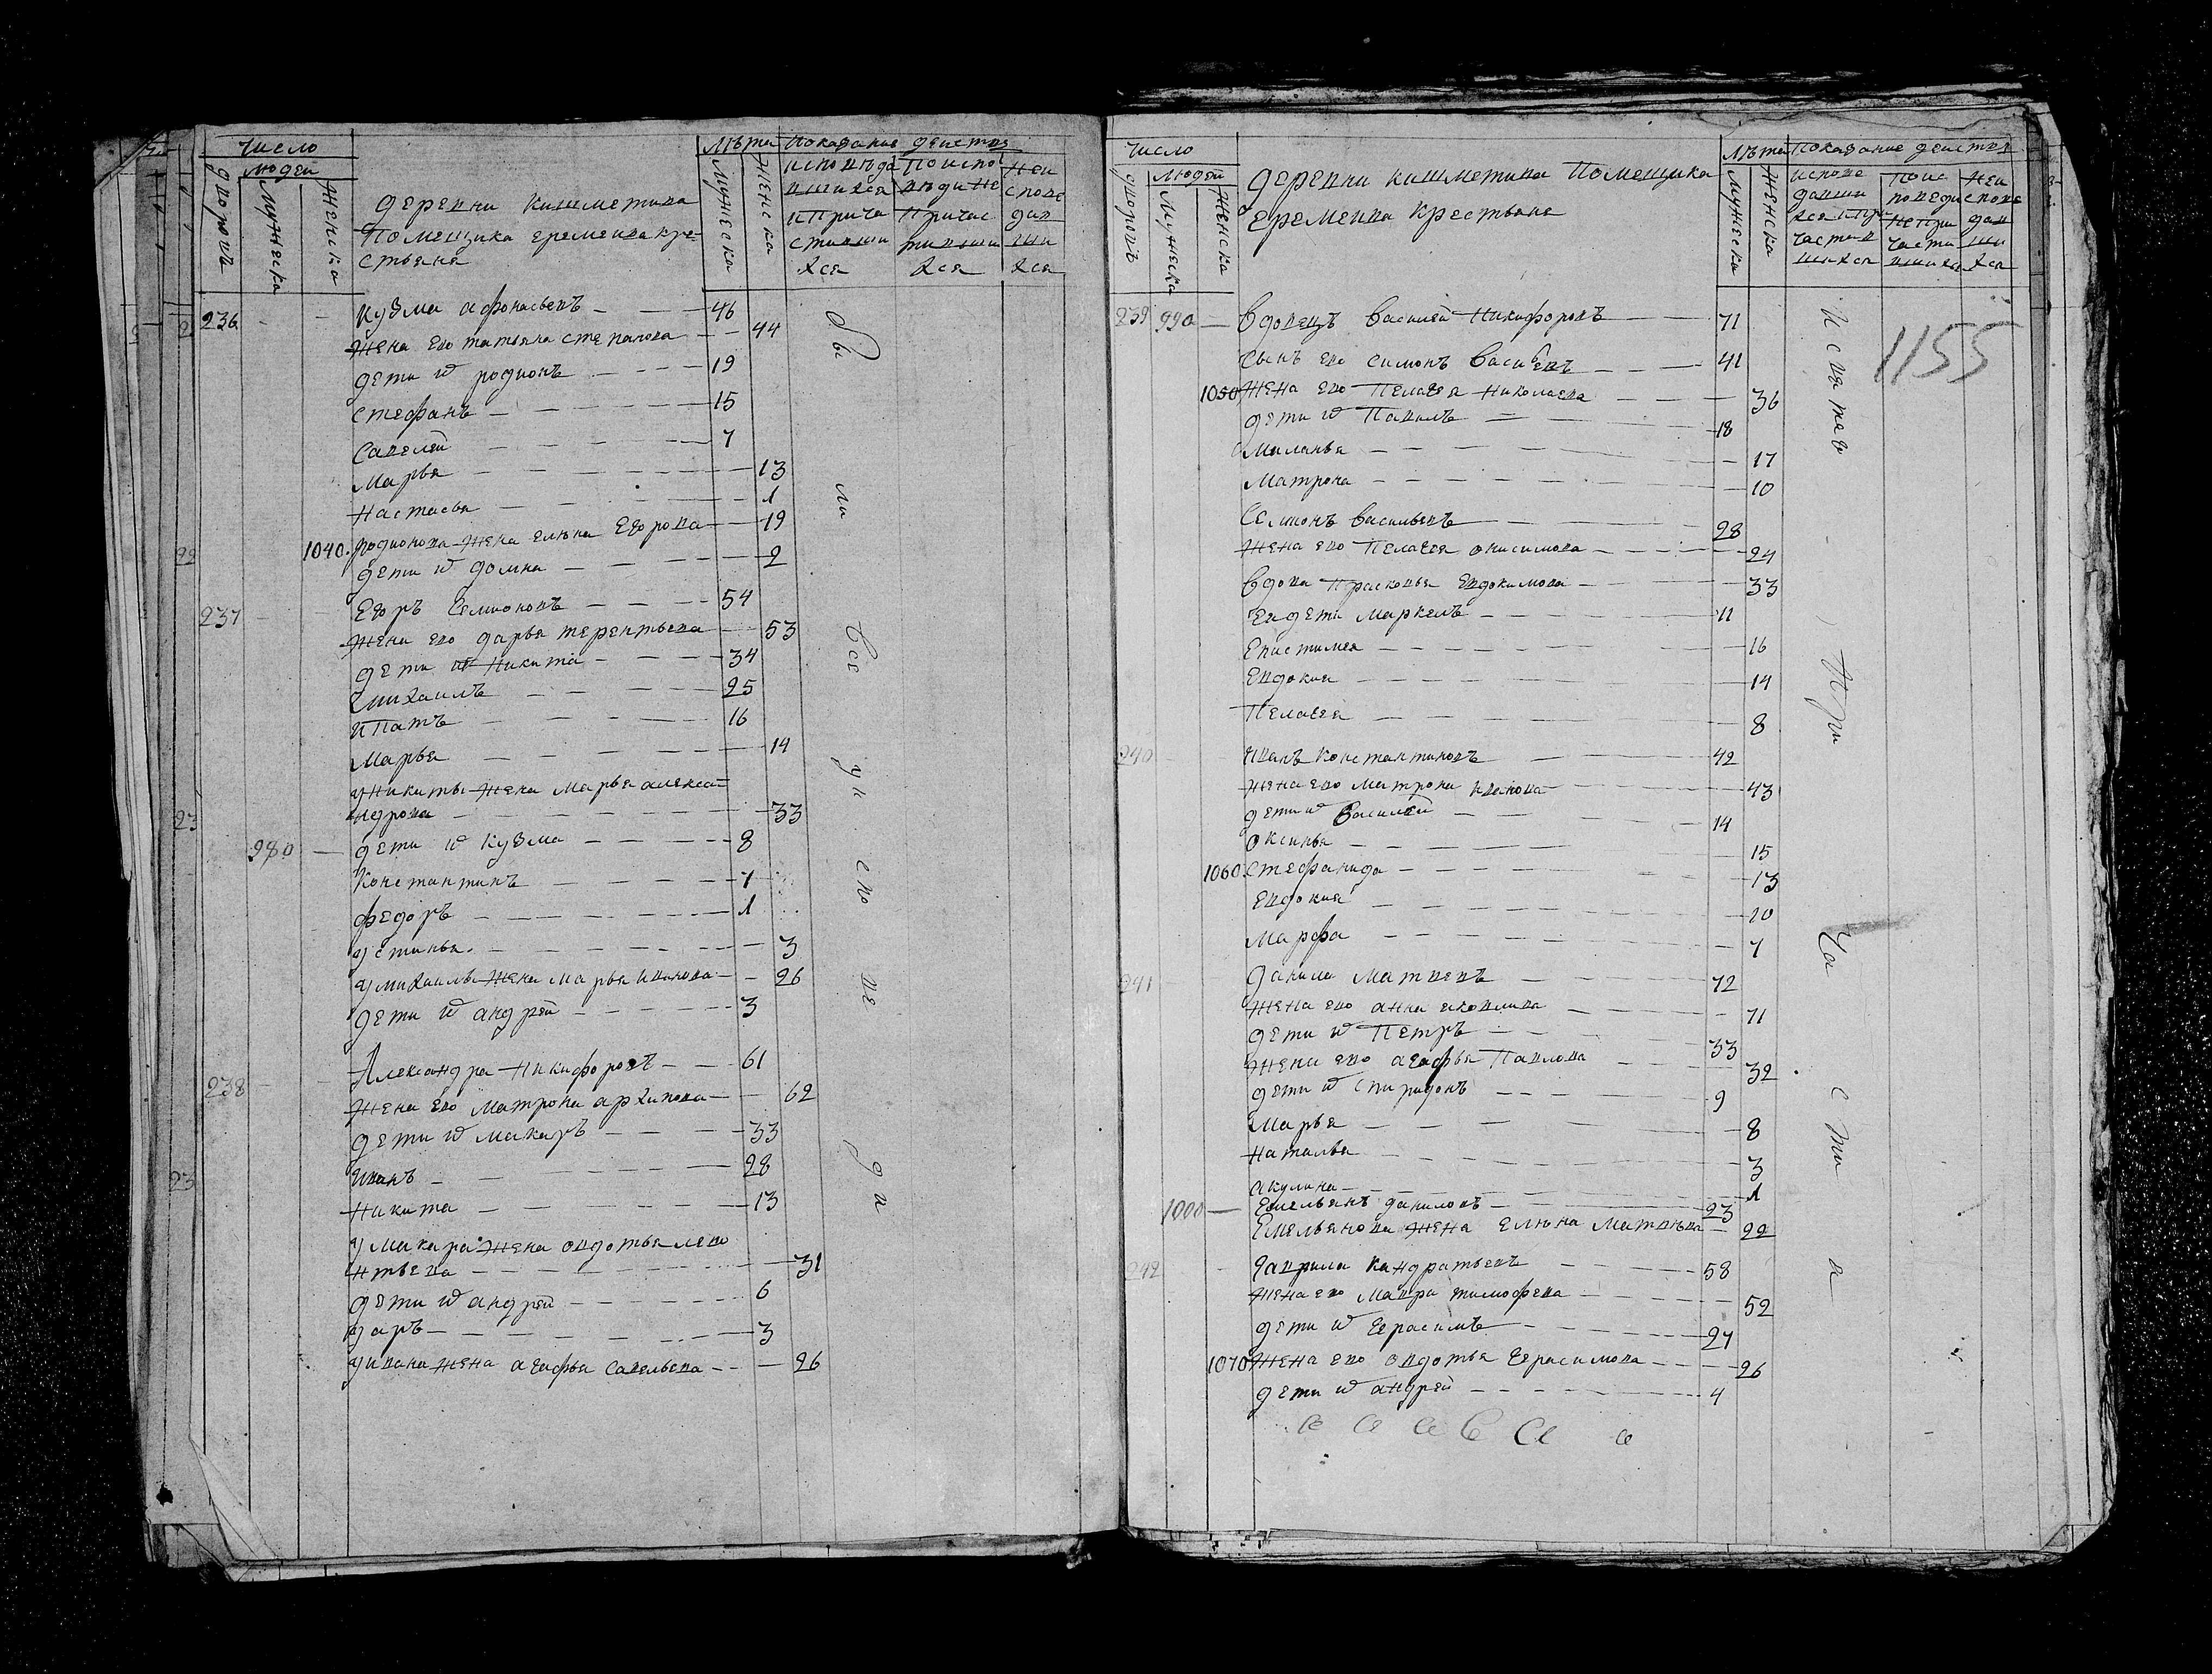 Число
людей
дворовъ
Мужеска
Женска
деревни Кишметива
Помещика еремеива кре-
стьяна
Лѣта
Мужеска
Женска
Показание действ
исповѣда
вшихся
и Прича
стивши
хся
По испо
вѣди не
Причас
тивши
хся
Неи
спове
дав
ши
хся
236 Кузма афонасьевъ 46
Жена ево татьяна степанова 44
дети ѿ родионъ 19
стефанъ 15
Савелей 7
Марья 13
Настасья 1
1040. родионова Жена елѣна Егорова 19
дети ѿ домна 2
237 Егоръ Семионовъ 54
Жена ево дарья терентьева 53
дети ѿ Никита 34
михаилъ 25
ипатъ 16
Марья 14
у Никиты Жена Марья алекса-
ндрова 33
980 дети ѿ Кузма 8
Константинъ 7
федоръ 1
устинья 3
у михаилы Жена Марья иванова 26
дети ѿ андрей 3
238 Александра Никифоровъ 61
Жена ево Матрона архипова 62
дети ѿ макаръ 33
иванъ 28
Никита 13
у Макара Жена овдотья лево
нтьева 31
дети ѿ андрей 6
уаръ 3
у ивана Жена агафья савельева 26
Обы ли все у и спо ве да
Число
людей
дворовъ
Мужеска
Женска
деревни кишметива Помещика
еремеива крестьяна
Лѣта
Мужеска
Женска
Показание действ
испове
давши
хся и При
частив
шихся
Поис
поведи
не При
части
вшихся
Неи
спове
дав
ши
хся
1155
239 990 Вдовецъ василей Никифоровъ 71
сынъ ево симонъ васильевъ 41
1050 Жена ево Пелагея Николаева 36
дети ѿ Павилъ 18
Маланья 17
Матрона 10
Семионъ васильевъ 28
Жена ево Пелагея онисимова 24
Вдова Прасковья Евдокимова 33
Ея дети Маркелъ 11
Епистимея 16
Евдокия 14
Пелагея 8
240 Иванъ Константиновъ 42
Жена ево Матрона иванова 43
дети ѿ Василей 14
оксинья 15
1060. стефанида 13
Евдокия 10
Марфа 7
241 данила Матвеевъ 72
Жена ево анна яковлива 71
дети ѿ Петръ 33
Жена ево агафья Павлова 32
дети ѿ спиридонъ 9
Марья 8
Наталья 3
акулина 1
1000 Емельянъ даниловъ 23
Емельянова Жена елѣна Матвѣева 22
242 Гаврила кандратьевъ 58
Жена ево Мавра тимофева 52
дети ѿ Герасимъ 27
1070 Жена ево овдотья Герасимова 26
дети ѿ андрей 4
И свя таго При ча сти я